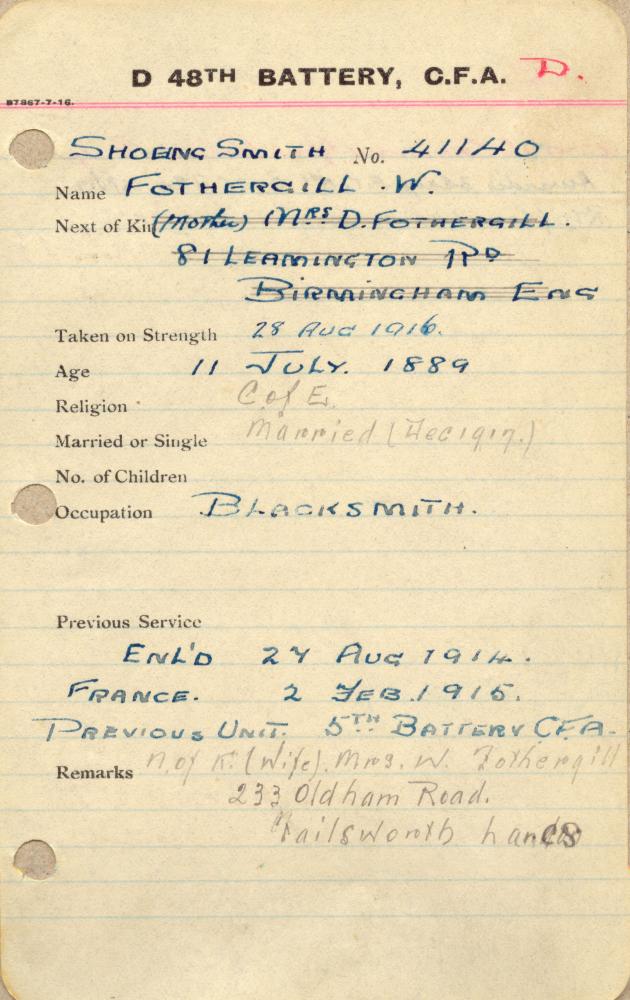 D 48TH BATTERY, C.F.A. D.
B7867-7-16.
SHOEING SMITH No. 41140
Name FOTHERGILL .W.
Next of Kin (Mother) MRS D. FOTHERGILL.
81 LEAMINGTON RD
BIRMINGHAM ENG
Taken on Strength 28 AUG 1916.
Age 11 JULY. 1889
Religion C. of E.
Married or Single Married (Dec 1917.)
No. of Children
Occupation BLACKSMITH.
Previous Service
ENL'D 27 AUG 1914.
FRANCE. 2 FEB. 1915.
PREVIOUS UNIT. 5TH BATTERY C.F.A.
Remarks N. of K. (Wife). Mrs. W. Fothergill
233 Oldham Road.
Failsworth